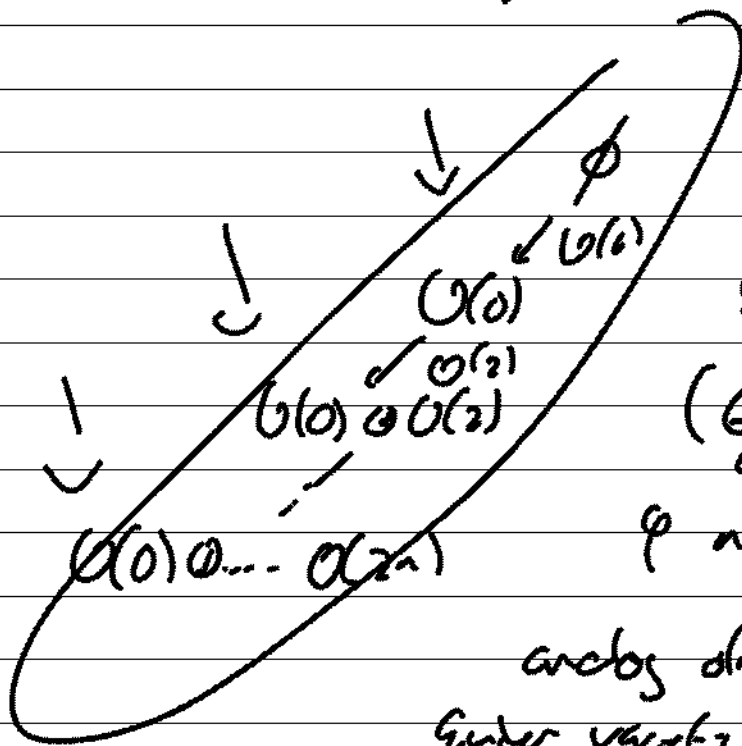 ∅
O(0)
O(0)
O(2)
O(0) ⊕ O(2)
O(0) ⊕ .... O(2n)
φ
analog